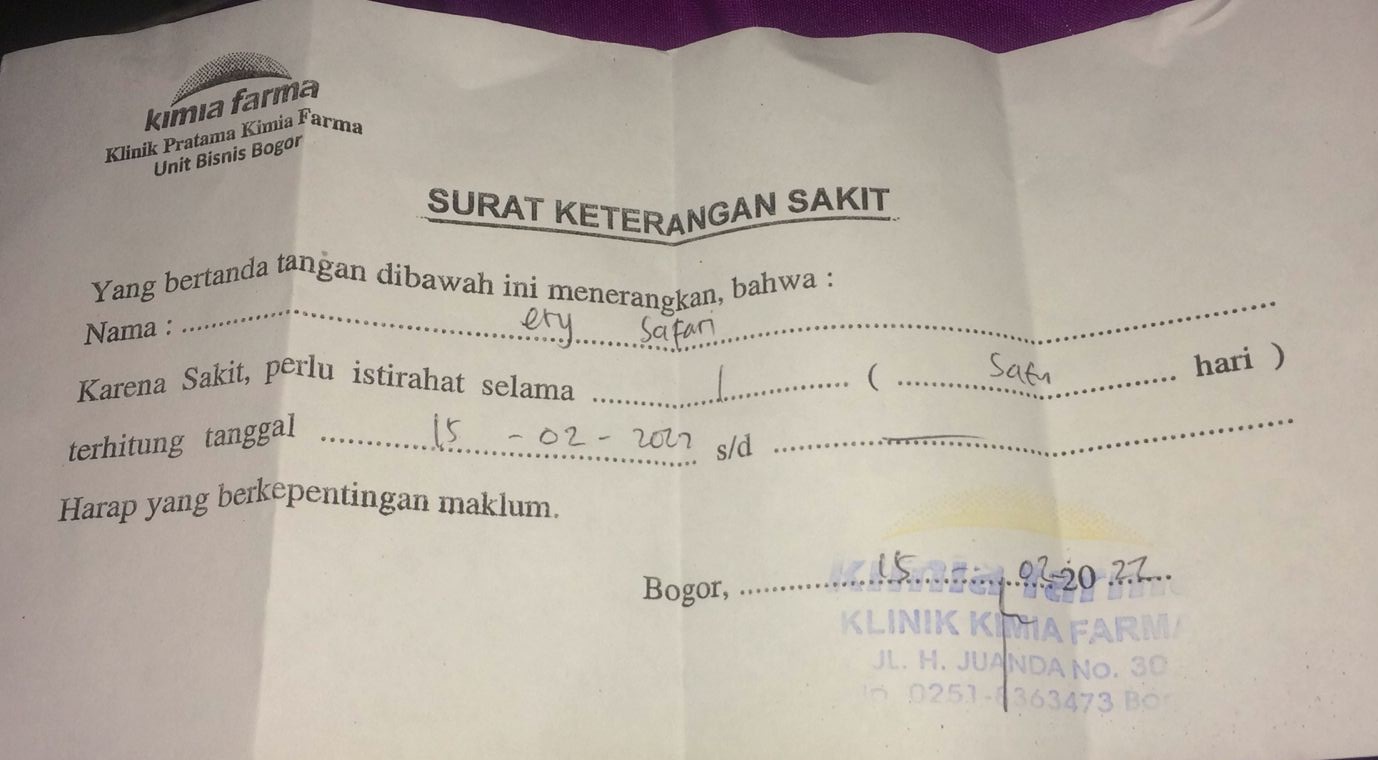 kimia farma
Klinik Pratama Kimia Farma
Unit Bisnis Bogor
SURAT KETERANGAN SAKIT
Yang bertanda tangan dibawah ini menerangkan, bahwa :
Nama : ery Safari
Karena Sakit, perlu istirahat selama 1 ( Satu hari )
terhitung tanggal 15 - 02 - 2022 s/d —
Harap yang berkepentingan maklum.
Bogor, 15 - 02 - 20 22
kimia farma
KLINIK KIMIA FARMA
JL. H. JUANDA No. 30
0251-8363473 Bo